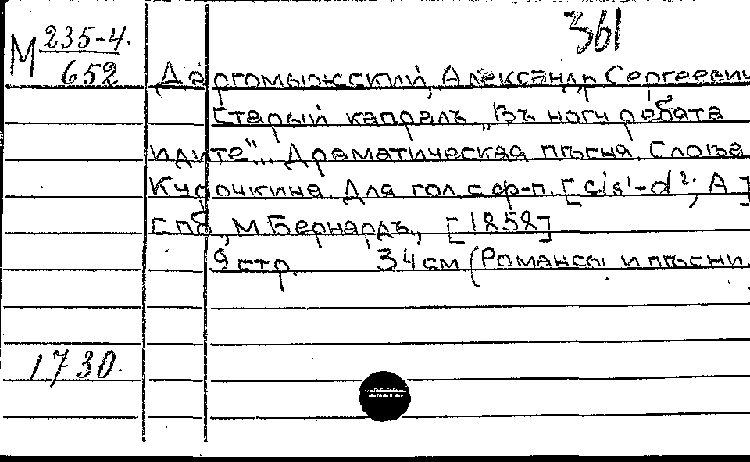 361
М 235-4.
652
Даргомыжский, Александр Сергеевич
Старый капралъ „Въ ногу ребята
идите"... Драматическая пѣсня. Слова
Курочкина. Для гол. с ф-п. [cis¹-d²; A]
Спб., М. Бернардъ, [1858]
9 стр. 34 см (Романсы и пѣсни
1730.